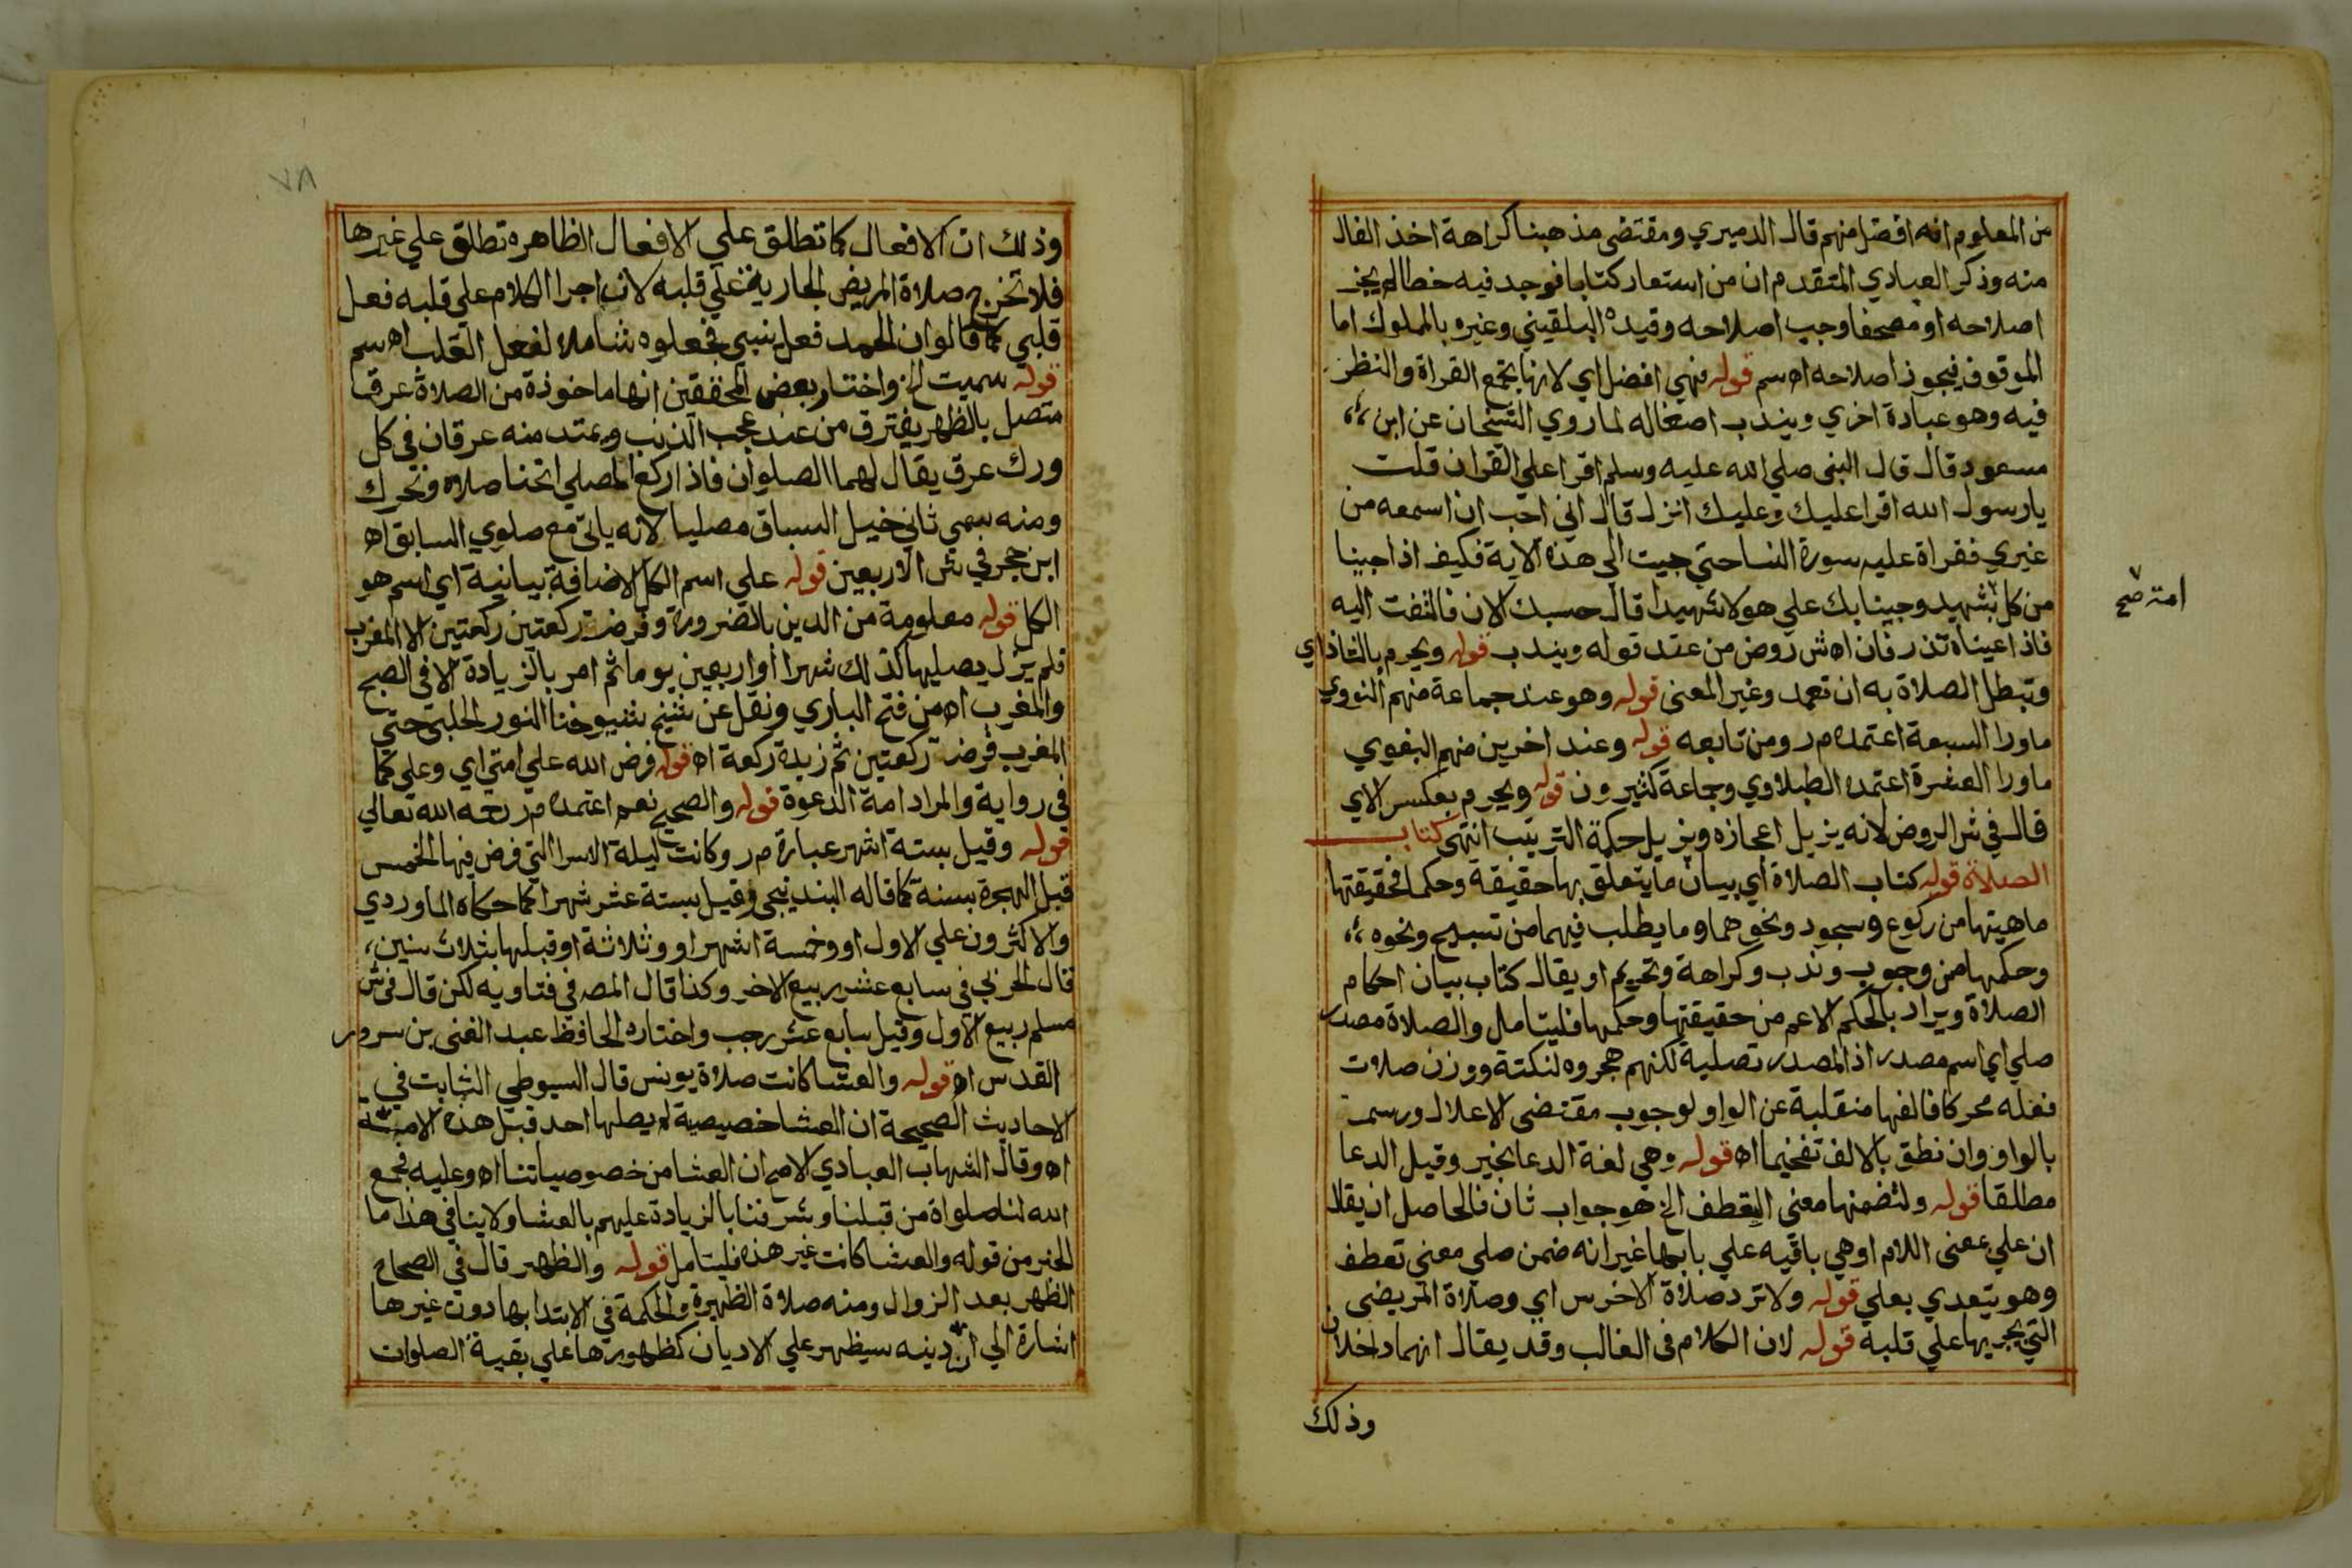 من المعلوم انه افضل منهم قال الدميري ومقتضى مذهبنا كراهة اخذ الفال
منه وذكر العبادي المتقدم ان من استعار كتابا فوجد فيه خطا لم يجز
اصلاحه او مصحفا وجب اصلاحه وقيده البلقيني وغيره بالمملوك اما
الموقوف فيجوز اصلاحه اه سم قوله فهي افضل اي لانها تجمع القراة والنظر
فيه وهو عبادة اخري ويندب اصغاله لما روي الشيخان عن ابن
مسعود قال قال النبى صلي الله عليه وسلم اقرا علي القران قلت
يا رسول الله اقرا عليك وعليك انزل قال اني احب ان اسمعه من
غيري فقراة عليه سورة النسا حتي جيت الي هذه الاية فكيف اذا جينا
من كل بشهيد وجينا بك علي هولا شهيدا قال حسبك الان فالتفت اليه
امة صح
فاذا عيناه تذرفان اه ش روض من عند قوله ويندب قوله ويحرم بالشاذ اي
وتبطل الصلاة به ان تعمد وغير المعنى قوله وهو عند جماعة منهم النووي
ماورا السبعة اعتمده م ر ومن تابعه قوله وعند اخرين منهم البغوي
ماورا العشرة اعتمده الطبلاوي وجماعة كثيرون قوله ويحرم بعكس الاي
قال في ش الروض لانه يزيل اعجازه ويزيل حكمة الترتيب انتهى كتاب
الصلاة قوله كتاب الصلاة أي بيان ما يتعلق بها حقيقة وحكما فحقيقتها
ماهيتها من ركوع وسجود ونحوهما وما يطلب فيهما من تسبيح ونحوه
وحكمها من وجوب وندب وكراهة وتحريم او يقال كتاب بيان احكام
الصلاة ويراد بالحكم الاعم من حقيقتها وحكمها فليتامل والصلاة مصدر
صلي اي اسم مصدر اذ المصدر تصلية لكنهم هجروه لنكتة ووزن صلات
فعله محركا فالفها منقلبة عن الواو لوجوب مقتضى الاعلال ورسمت
بالواو وان نطق بالالف تفخيما اه قوله وهي لغة الدعا بخير وقيل الدعا
مطلقا قوله ولتضمنها معنى التعطف الخ هو جواب ثان فالحاصل ان يقال
ان علي بمعنى اللام او هي باقيه علي بابها غير انه ضمن صلي معنى تعطف
وهو يتعدي بعلي قوله ولا ترد صلاة الاخرس اي وصلاة المريض
التي يجريها علي قلبه قوله لان الكلام فى الغالب وقد يقال انهما داخلان
وذلك
٧٨
وذلك ان الافعال كما تطلق علي الافعال الظاهره تطلق علي غيرها
فلا تخرج صلاة المريض الجارية علي قلبه لان اجرا الكلام علي قلبه فعل
قلبي كما قالوا ان الحمد فعل ينبي فجعلوه شاملا لفعل القلب اه سم
قوله سميت الخ واختار بعض المحققين انها ماخوذة من الصلاة عرقا
متصل بالظهر يفترق من عند عجب الذنب ويمتد منه عرقان في كل
ورك عرق يقال لهما الصلوان فاذا ركع المصلي انحنا صلاه وتحرك
ومنه سمي ثاني خيل السباق مصليا لانه ياتى مع صلوي السابق اه
ابن حجر في ش الاربعين قوله علي اسم الكل الاضافة بيانية اي اسم هو
الكل قوله معلومة من الدين بالضرورة وفرضت ركعتين ركعتين الا المغرب
فلم يزل يصليها كذلك شهرا او اربعين يوما ثم امر بالزيادة الا في الصبح
والمغرب اه من فتح الباري ونقل عن شيخ شيوخنا النور الحلبي حتي
المغرب فرضت ركعتين ثم زيدة ركعة اه قوله فرض الله علي امتي اي وعلي كما
في رواية والمراد امة الدعوة قوله والصحيح نعم اعتمده م ر رحمه الله تعالي
قوله وقيل بستة اشهر عبارة م ر وكانت ليلة الاسرا التي فرض فيها الخمس
قبل الهجرة بسنة كما قاله البندنيجي وقيل بستة عشر شهرا كما حكاه الماوردي
والاكثرون علي الاول او وخمسة اشهر او وثلاثة او قبلها بثلاث سنين
قال الحربي في سابع عشر ربيع الاخر وكذا قال المصـ في فتاويه لكن قال في ش
مسلم ربيع الاول وقيل سابع عشر رجب واختاره الحافظ عبد الغني بن سرور
القدسي اه قوله والعشا كانت صلاة يونس قال السيوطي الثابت في
الاحاديث الصحيحة ان العشا خصيصية لم يصلها احد قبل هذه الامـة
اه وقال الشهاب العبادي الاصح ان العشا من خصوصياتنا اه وعليه فجمع
الله لنا صلواة من قبلنا وشرفنا بالزيادة عليهم بالعشا ولا ينافي هذا ما
الخبر من قوله والعشا كانت غير هذه فليتامل قوله والظهر قال في الصحاح
الظهر بعد الزوال ومنه صلاة الظهيرة والحكمة في الابتدا بها دون غيرها
اشارة الي ان دينه سيظهر علي الاديان كظهورها علي بقية الصلوات